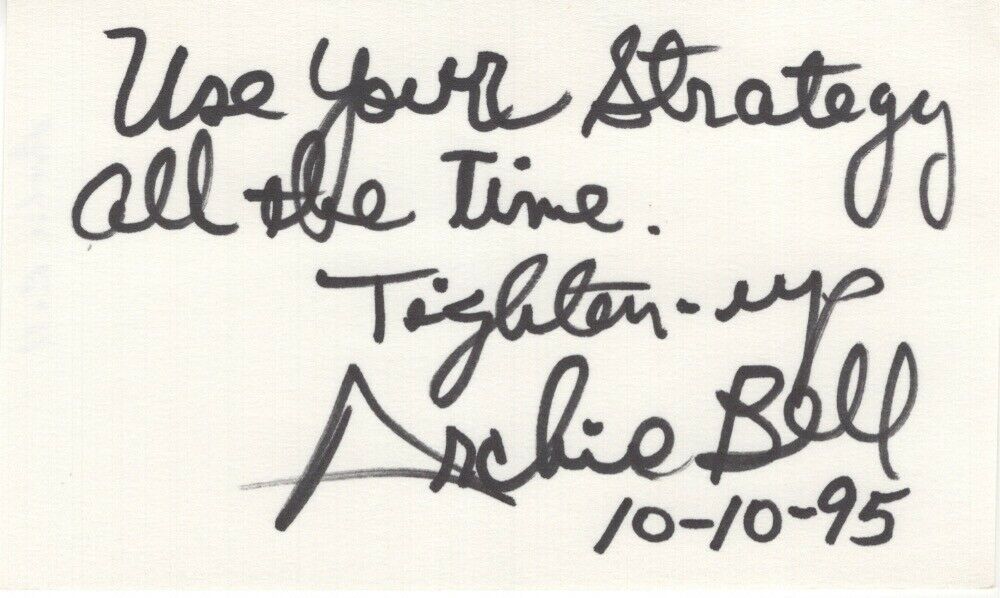 Use Your Strategy
All the Time.
Tighten-up
Archie Bell
10-10-95